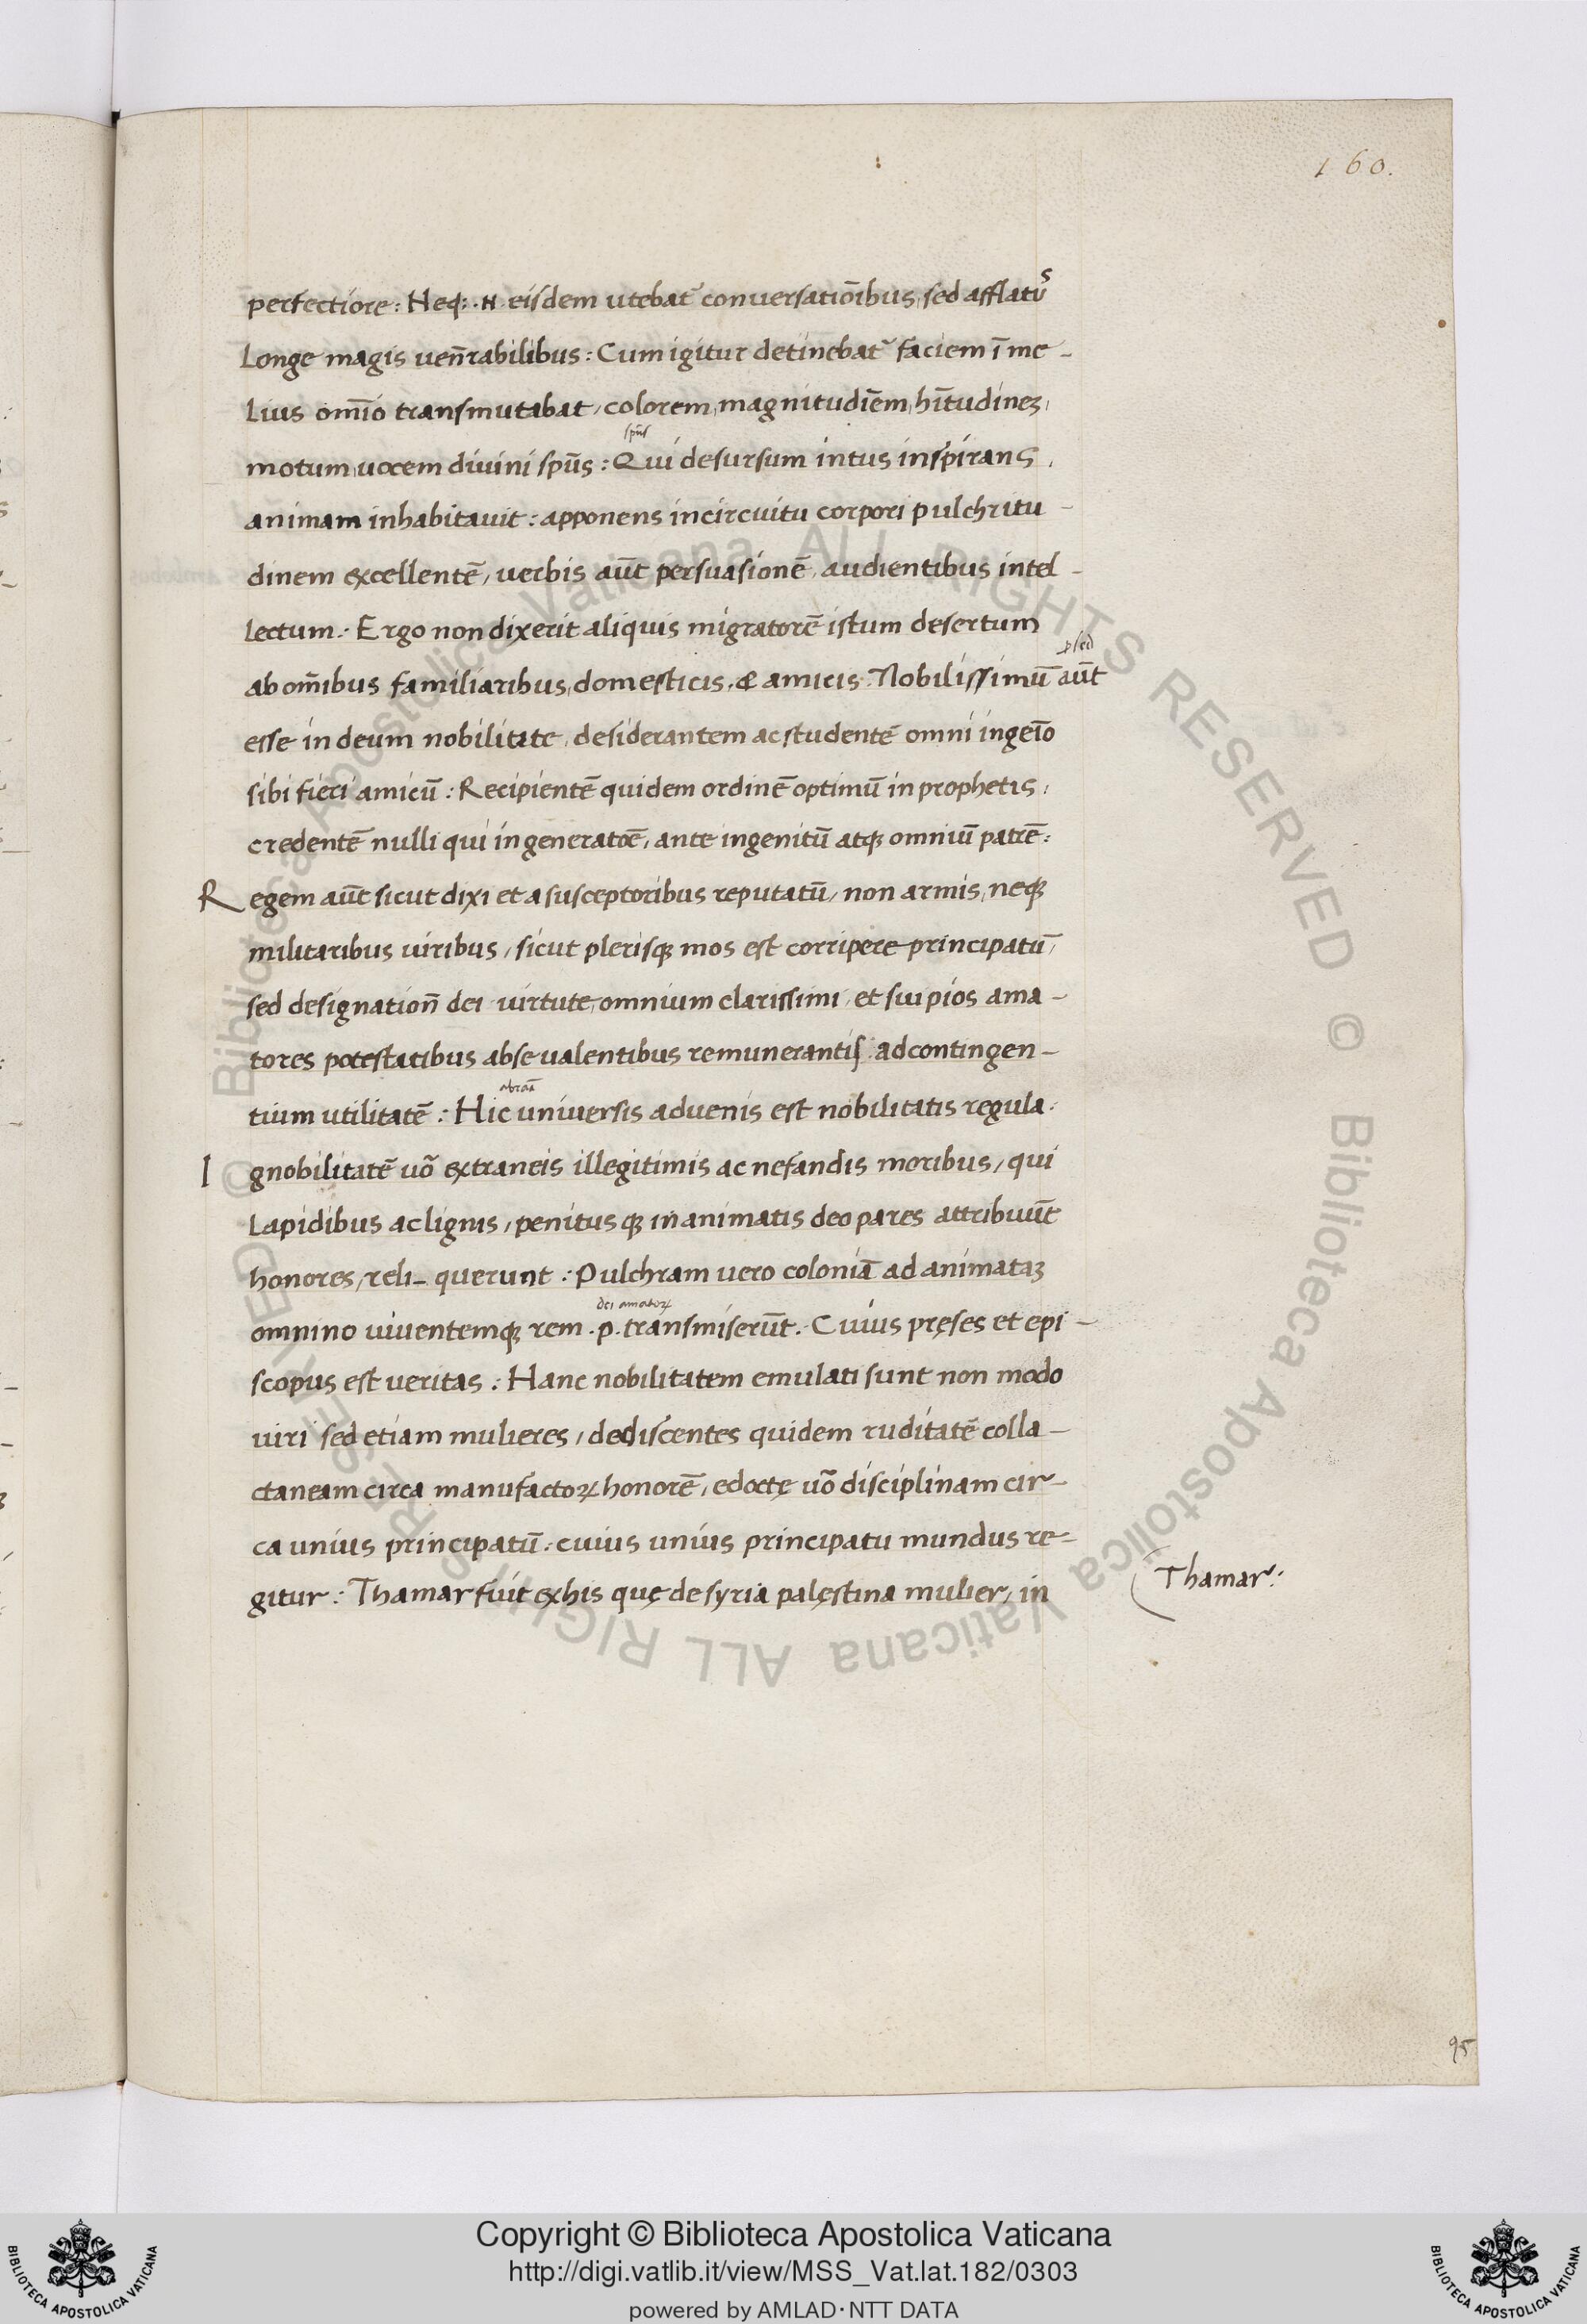 160.
perfectiore : Neq; .N. eisdem utebat᷑ conuersatiōibus, sed afflatūs
Longe magis uen̄rabilibus : Cum igitur detinebat᷑ faciem ī me-
Lius om̄io transmutabat, colorem, magnitudiēm, hītudineȝ,
spūs
motum, uocem diuini spūs : Qui desursum intus inspirans,
animam inhabitauit : apponens incircuitu corpori pulchritu-
dinem excellentē, uerbis aūt persuasionē, audientibus intel-
lectum. Ergo non dixerit aliquis migratorē istum desertum
ab om̄ibus familiaribus, domesticis, & amicis. Nobilissimū aūt
esse in deum nobilitate, desiderantem ac studentē omni ingēıo
sibi fieri amicū : Recipientē quidem ordinē optimū in prophetis,
credentē nulli qui in generatōe, ante ingenitū atqȝ omniū patrē:
Regem aūt sicut dixi et a susceptoribus reputatū, non armis, neqȝ
militaribus uiribus, sicut plerisqȝ mos est corripere principatū,
sed designation̄ dei uirtute, omnium clarissimi, et sui pios ama-
tores potestatibus abse ualentibus remunerantis adcontingen-
abraā
tium utilitatē : Hic uniuersis aduenis est nobilitatis regula.
Ignobilitatē uō extraneis illegitimis ac nefandis moribus, qui
Lapidibus ac lignis, penitusqȝ inanimatis deo pares attribuūt
honores, reli- querunt : Pulchram uero coloniā ad animataȝ
dei amatoꝝ
omnino uiuentemqȝ rem .p. transmiserūt. Cuius pręses et epi-
scopus est ueritas : Hanc nobilitatem emulati sunt non modo
uiri sed etiam mulieres, dediscentes quidem ruditatē colla-
ctaneam circa manufactoꝝ honorē, edoctę uō disciplinam cir-
ca unius principatū : cuius unius principatu mundus re-
gitur : Thamar fuit ex his quę de syria palęstina mulier, in
Thamar :
95
Copyright © Biblioteca Apostolica Vaticana
http://digi.vatlib.it/view/MSS_Vat.lat.182/0303
powered by AMLAD·NTT DATA
BIBLIOTECA APOSTOLICA VATICANA
BIBLIOTECA APOSTOLICA VATICANA
© Biblioteca Apostolica Vaticana ALL RIGHTS RESERVED © Biblioteca Apostolica Vaticana ALL RIGHTS RESERVED